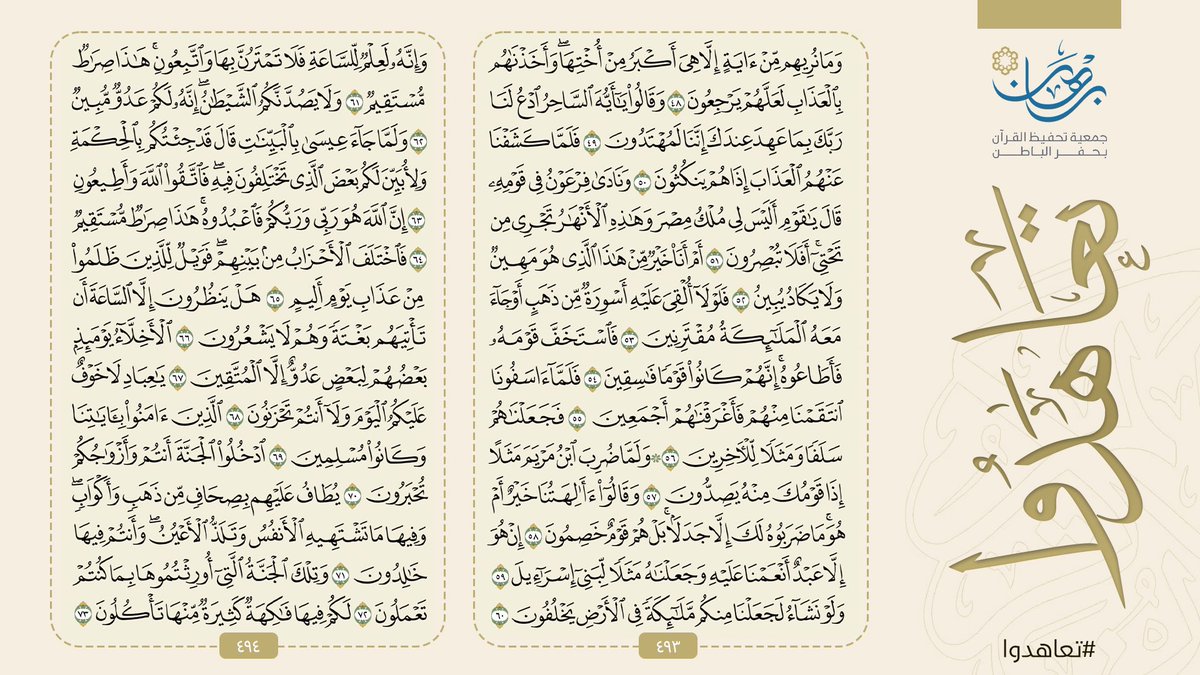 برهان
جمعية تحفيظ القرآن
بحفر الباطن
تعاهدوا
#تعاهدوا
وَمَا نُرِيهِم مِّنْ ءَايَةٍ إِلَّا هِيَ أَكْبَرُ مِنْ أُخْتِهَا ۖ وَأَخَذْنَٰهُم
بِالْعَذَابِ لَعَلَّهُمْ يَرْجِعُونَ ٤٨ وَقَالُوا۟ يَٰٓأَيُّهَ السَّاحِرُ ادْعُ لَنَا
رَبَّكَ بِمَا عَهِدَ عِندَكَ إِنَّنَا لَمُهْتَدُونَ ٤٩ فَلَمَّا كَشَفْنَا
عَنْهُمُ الْعَذَابَ إِذَا هُمْ يَنكُثُونَ ٥٠ وَنَادَىٰ فِرْعَوْنُ فِي قَوْمِهِۦ
قَالَ يَٰقَوْمِ أَلَيْسَ لِي مُلْكُ مِصْرَ وَهَٰذِهِ الْأَنْهَٰرُ تَجْرِي مِن
تَحْتِيٓ ۖ أَفَلَا تُبْصِرُونَ ٥١ أَمْ أَنَا۠ خَيْرٌ مِّنْ هَٰذَا الَّذِي هُوَ مَهِينٌ
وَلَا يَكَادُ يُبِينُ ٥٢ فَلَوْلَآ أُلْقِيَ عَلَيْهِ أَسْوِرَةٌ مِّن ذَهَبٍ أَوْ جَآءَ
مَعَهُ الْمَلَٰٓئِكَةُ مُقْتَرِنِينَ ٥٣ فَاسْتَخَفَّ قَوْمَهُۥ
فَأَطَاعُوهُ ۚ إِنَّهُمْ كَانُوا۟ قَوْمًا فَٰسِقِينَ ٥٤ فَلَمَّآ ءَاسَفُونَا
انتَقَمْنَا مِنْهُمْ فَأَغْرَقْنَٰهُمْ أَجْمَعِينَ ٥٥ فَجَعَلْنَٰهُمْ
سَلَفًا وَمَثَلًا لِّلْـَٔاخِرِينَ ٥٦ ۞ وَلَمَّا ضُرِبَ ابْنُ مَرْيَمَ مَثَلًا
إِذَا قَوْمُكَ مِنْهُ يَصِدُّونَ ٥٧ وَقَالُوٓا۟ ءَأَٰلِهَتُنَا خَيْرٌ أَمْ
هُوَ ۚ مَا ضَرَبُوهُ لَكَ إِلَّا جَدَلًۢا ۚ بَلْ هُمْ قَوْمٌ خَصِمُونَ ٥٨ إِنْ هُوَ
إِلَّا عَبْدٌ أَنْعَمْنَا عَلَيْهِ وَجَعَلْنَٰهُ مَثَلًا لِّبَنِيٓ إِسْرَٰٓءِيلَ ٥٩
وَلَوْ نَشَآءُ لَجَعَلْنَا مِنكُم مَّلَٰٓئِكَةً فِي الْأَرْضِ يَخْلُفُونَ ٦٠
٤٩٣
وَإِنَّهُۥ لَعِلْمٌ لِّلسَّاعَةِ فَلَا تَمْتَرُنَّ بِهَا وَاتَّبِعُونِ ۚ هَٰذَا صِرَٰطٌ
مُّسْتَقِيمٌ ٦١ وَلَا يَصُدَّنَّكُمُ الشَّيْطَٰنُ ۖ إِنَّهُۥ لَكُمْ عَدُوٌّ مُّبِينٌ
٦٢ وَلَمَّا جَآءَ عِيسَىٰ بِالْبَيِّنَٰتِ قَالَ قَدْ جِئْتُكُم بِالْحِكْمَةِ
وَلِأُبَيِّنَ لَكُم بَعْضَ الَّذِي تَخْتَلِفُونَ فِيهِ ۖ فَاتَّقُوا۟ اللَّهَ وَأَطِيعُونِ
٦٣ إِنَّ اللَّهَ هُوَ رَبِّي وَرَبُّكُمْ فَاعْبُدُوهُ ۚ هَٰذَا صِرَٰطٌ مُّسْتَقِيمٌ
٦٤ فَاخْتَلَفَ الْأَحْزَابُ مِنۢ بَيْنِهِمْ ۖ فَوَيْلٌ لِّلَّذِينَ ظَلَمُوا۟
مِنْ عَذَابِ يَوْمٍ أَلِيمٍ ٦٥ هَلْ يَنظُرُونَ إِلَّا السَّاعَةَ أَن
تَأْتِيَهُم بَغْتَةً وَهُمْ لَا يَشْعُرُونَ ٦٦ الْأَخِلَّآءُ يَوْمَئِذٍۭ
بَعْضُهُمْ لِبَعْضٍ عَدُوٌّ إِلَّا الْمُتَّقِينَ ٦٧ يَٰعِبَادِ لَا خَوْفٌ
عَلَيْكُمُ الْيَوْمَ وَلَآ أَنتُمْ تَحْزَنُونَ ٦٨ الَّذِينَ ءَامَنُوا۟ بِـَٔايَٰتِنَا
وَكَانُوا۟ مُسْلِمِينَ ٦٩ ادْخُلُوا۟ الْجَنَّةَ أَنتُمْ وَأَزْوَٰجُكُمْ
تُحْبَرُونَ ٧٠ يُطَافُ عَلَيْهِم بِصِحَافٍ مِّن ذَهَبٍ وَأَكْوَابٍ ۖ
وَفِيهَا مَا تَشْتَهِيهِ الْأَنفُسُ وَتَلَذُّ الْأَعْيُنُ ۖ وَأَنتُمْ فِيهَا
خَٰلِدُونَ ٧١ وَتِلْكَ الْجَنَّةُ الَّتِيٓ أُورِثْتُمُوهَا بِمَا كُنتُمْ
تَعْمَلُونَ ٧٢ لَكُمْ فِيهَا فَٰكِهَةٌ كَثِيرَةٌ مِّنْهَا تَأْكُلُونَ ٧٣
٤٩٤